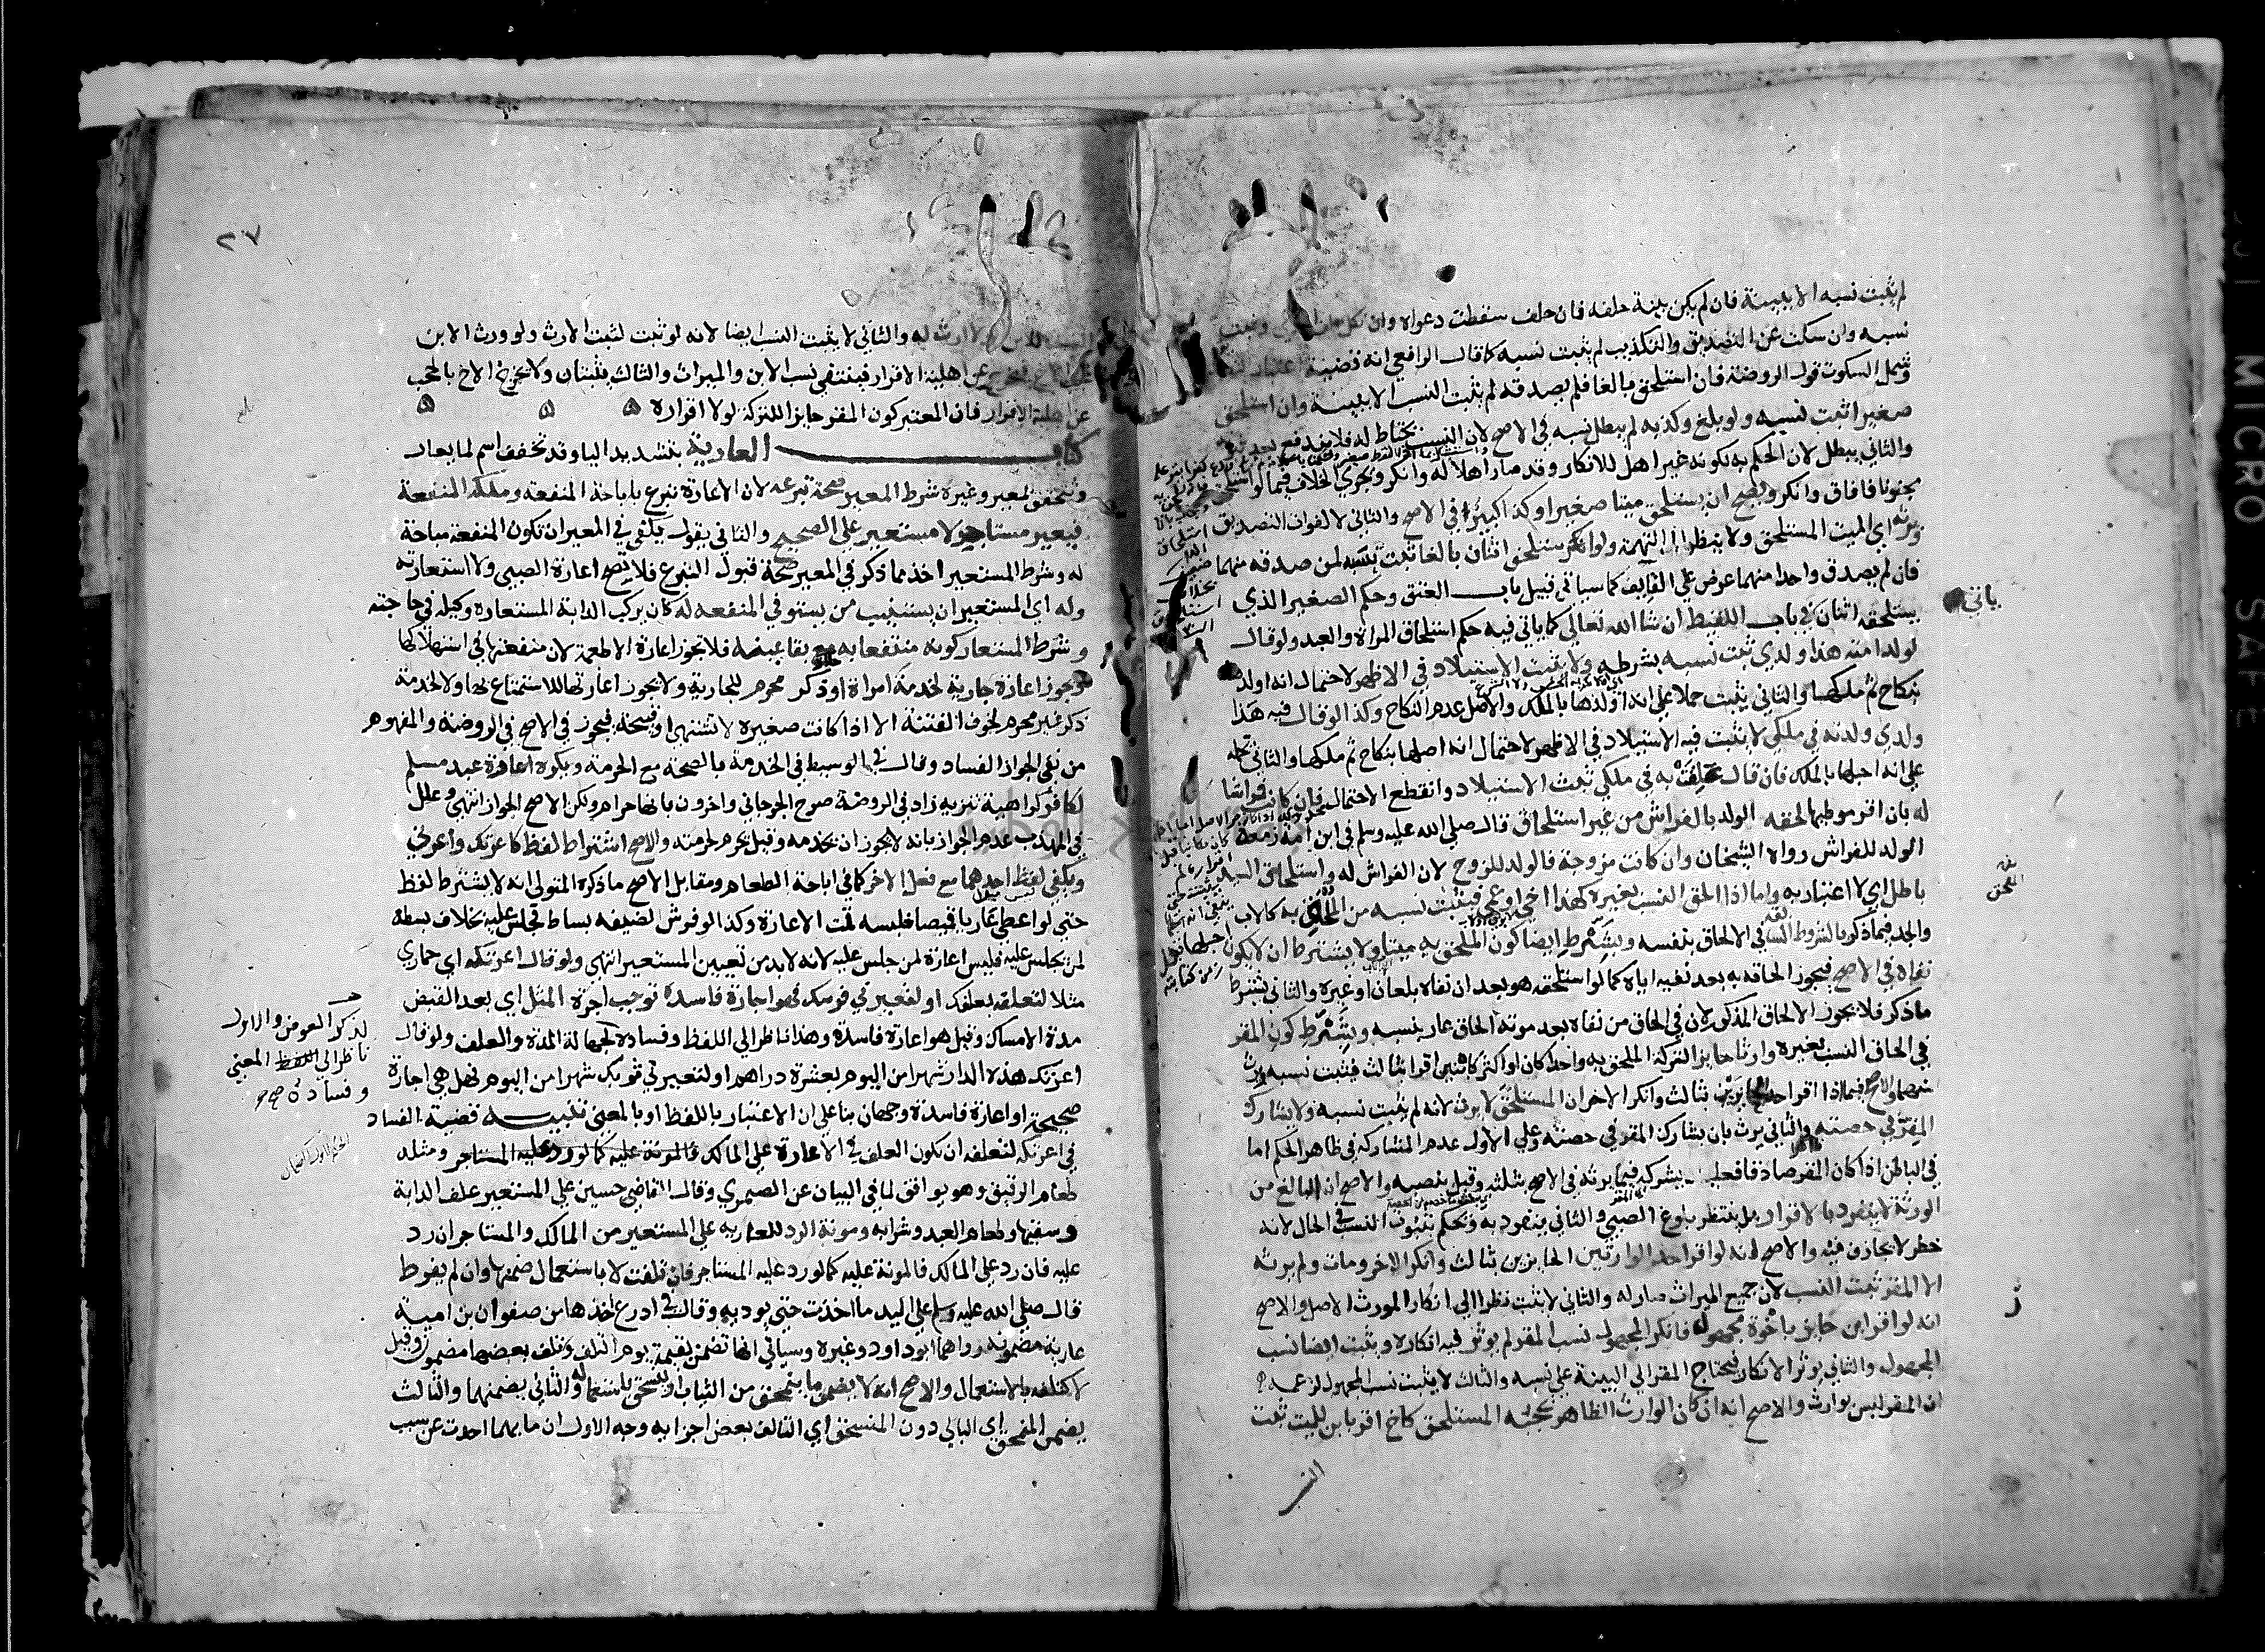 لم يثبت نسبه الا ببينة فان لم يكن بينة حلفه فان حلف سقطت دعواه وان نكل
نسبه وان سكت عن التصديق والتكذيب لم يثبت نسبه كما قال الرافعي انه قضية اعتبار
وشمل السكوت قول الروضة فان استلحق بالغا فلم يصدقه لم يثبت النسب الا ببينة وان استلحق
صغيرا ثبت نسبه ولو بلغ وكذبه لم يبطل نسبه في الاصح لان النسب يحتاط له فلا يندفع بعد ثبوته
والثاني يبطل لان الحكم به لكونه غير اهل للانكار وقد صار اهلا له وانكر ويجري الخلاف فيما لو استلحق
مجنونا فافاق وانكر ويصح ان يستلحق ميتا صغيرا وكذا كبيرا في الاصح والثاني لا لفوات التصديق
ويرثه اي الميت المستلحق ولا ينظر الى التهمة ولو استلحق اثنان بالغا ثبت نسبه لمن صدقه منهما
فان لم يصدق واحدا منهما عرض على القايف كما سياتي قبيل باب العتق وحكم الصغير الذي
يستلحقه اثنان في باب اللقيط ان شا الله تعالى كما ياتي فيه حكم استلحاق المراة والعبد ولو قال
لولد امته هذا ولدي ثبت نسبه بشرطه ولا يثبت الاستيلاد في الاظهر لاحتمال انه اولدها
بنكاح ثم ملكها والثاني يثبت حملا على انه اولدها بالملك والاصل عدم النكاح وكذا لو قال فيه هذا
ولدي ولدته في ملكي لا يثبت فيه الاستيلاد في الاظهر لاحتمال انه احبلها بنكاح ثم ملكها والثاني
على انه احبلها بالملك فان قال علقت به في ملكي ثبت الاستيلاد وانقطع الاحتمال فان كانت فراشا
له بان اقر بوطيها لحقه الولد بالفراش من غير استلحاق قال صلى الله عليه وسلم في ابن امة زمعة
الولد للفراش رواه الشيخان وان كانت مزوجة فالولد للزوج لان الفراش له واستلحاق السيد
باطل اي لا اعتبار به واما اذا الحق النسب بغيره كهذا اخي او عمي فيثبت نسبه من الملحق به كالاب
والجد فيما ذكر بالشروط السابقة في الالحاق بنفسه ويشترط ايضا كون الملحق به ميتا ولا يشترط ان لا يكون
نفاه في الاصح فيجوز الحاقه به بعد نفيه اياه كما لو استلحقه هو بعد ان نفاه بلعان او غيره والثاني يشترط
ما ذكر فلا يجوز الالحاق المذكور لان في الحاق من نفاه بعد موته الحاق عار بنسبه ويشترط كون المقر
في الحاق النسب بغيره وارثا حايز التركة الملحق به واحدا كان او اكثر كابنين اقرا بثالث فيثبت نسبه ويرث
منهما والاصح فيما اذا اقر احد الحايزين بثالث وانكر الاخر ان المستلحق لا يرث لانه لم يثبت نسبه ولا يشارك
المقر في حصته والثاني يرث بان يشارك المقر في حصته وعلى الاول عدم المشاركه في ظاهر الحكم اما
في الباطن اذا كان المقر صادقا فعليه يشركه فيما يرثه في الاصح بثلثه وقيل بنصفه والاصح ان البالغ من
الورثة لا ينفرد بالاقرار بل ينتظر بلوغ الصبي والثاني ينفرد به ويحكم بثبوت النسب في الحال لانه
خطر لا يجازف فيه والاصح انه لو اقر احد الوارثين الحايزين بثالث وانكر الاخر ومات ولم يرثه
الا المقر ثبت النسب لان جميع الميراث صار له والثاني لا يثبت نظرا الى انكار المورث الاصل والاصح
انه لو اقر ابن حايز باخوة مجهول فانكر المجهول نسب المقر لم يوثر فيه انكاره ويثبت ايضا نسب
المجهول والثاني يوثر الانكار فيحتاج المقر الى البينة على نسبه والثالث لا يثبت نسب المجهول لزعمه
ان المقر ليس بوارث والاصح انه ان كان الوارث الظاهر يحجبه المستلحق كاخ اقر بابن للميت ثبت
ياتي
النسب
٢٧
لا ارث له والثاني لا يثبت النسب ايضا لانه لو ثبت لثبت الارث ولو ورث الابن
عن اهلية الاقرار فينتفي نسب الابن والميراث والثالث يثبتان ولا يخرج الاخ بالحجب
عن اهلية الاقرار فان المعتبر كون المقر حايز اللتركة لولا اقراره
كتاب العارية بتشديد اليا وقد تخفف اسم لما يعار
وتتحقق بمعير وغيره شرط المعير صحة تبرعه لان الاعارة تبرع باباحة المنفعة وملكه المنفعة
فيعير مستاجر لا مستعير على الصحيح والثاني يقول يكفي في المعير ان تكون المنفعة مباحة
له وشرط المستعير اخذ مما ذكر في المعير صحة قبول التبرع فلا تصح اعارة الصبي ولا استعارته
وله اي المستعير ان يستنيب من يستوفي المنفعه له كان يركب الدابة المستعارة وكيله في حاجته
وشرط المستعار كونه منتفعا به مع بقا عينه فلا تجوز اعارة الاطعمة لان منفعتها في استهلاكها
وتجوز اعارة جارية لخدمة امراة او ذكر محرم للجارية ولا يجوز اعارتها للاستمتاع بها ولا لخدمة
ذكر غير محرم لخوف الفتنة الا اذا كانت صغيرة لا تشتهى او قبيحة فيجوز في الاصح في الروضة والمفهوم
من نفي الجواز الفساد وقال في الوسيط في الخدمة بالصحة مع الحرمة ويكره اعارة عبد مسلم
لكافر كراهية تنزيه زاد في الروضة صرح الجرجاني واخرون بانها حرام ولكن الاصح الجواز انتهى وعلل
في المهذب عدم الجواز بانه لا يجوز ان يخدمه وقيل تحرم لحرمته والاصح اشتراط لفظ كاعرتك واعرني
ويكفي لفظ احدهما مع فعل الاخر كما في اباحة الطعام ومقابل الاصح ما ذكره المتولي انه لا يشترط لفظ
حتى لو اعطى عاريا قميصا فلبسه تمت الاعارة وكذا لو فرش لضيفه بساط فجلس عليه بخلاف بسطه
لمن يجلس عليه فليس اعارة لمن جلس عليه لانه لا بد من تعيين المستعير انتهى ولو قال اعرتكه اي حماري
مثلا لتعلفه بعلفك او لتعيرني فرسك فهو اجارة فاسدة توجب اجرة المثل اي بعد القبض
مدة الامساك وقيل هو اعارة فاسدة وهذا ناظر الى اللفظ وفساده لجهالة المدة والعلف ولو قال
اعرتك هذه الدار شهرا من اليوم بعشرة دراهم او لتعيرني ثوبك شهرا من اليوم فهل هي اجارة
صحيحة او اعارة فاسدة وجهان بنا على ان الاعتبار باللفظ او بالمعنى تنبيه قضية الفساد
في اعرتكه لتعلفه ان يكون العلف في الاعارة على المالك فالمونة عليه كما لو رد عليه المستاجر ومثله
طعام الرقيق وهو يوافق لما في البيان عن الصيمري وقال القاضي حسين على المستعير علف الدابة
وسقيها وطعام العبد وشرابه ومونة الرد للعاريه على المستعير من المالك والمستاجر ان رد
عليه فان رد على المالك فالمونة عليه كما لو رد عليه المستاجر فان تلفت لا باستعمال ضمنها وان لم يفرط
قال صلى الله عليه وسلم على اليد ما اخذت حتى توديه وقال في ادرع اخذها من صفوان بن امية
عارية مضمونة رواهما ابو داود وغيره وسياتي انها تضمن بقيمة يوم التلف وتلف بعضها مضمون وقيل
لا كتلفه بالاستعمال والاصح انه لا يضمن ما ينمحق من الثياب او ينسحق باستعماله والثاني يضمنهما والثالث
يضمن المنمحق اي البالي دون المنسحق اي التالف بعض اجزايه وجه الاول ان ما بهما احدث عن سبب
لذكر العوض والاول
ناظر الى اللفظ المعنى
وفساده صح